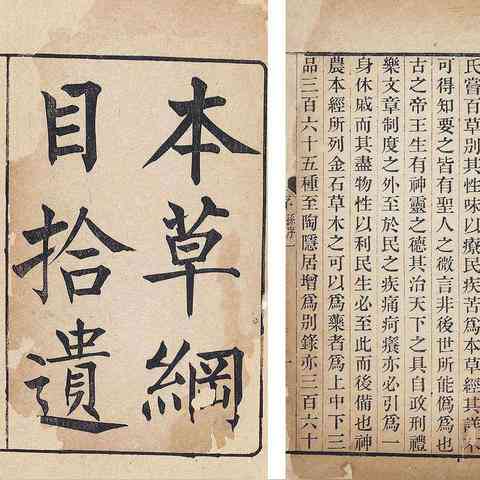 本草綱
目拾遺
氏嘗百草別其性味以療民疾苦爲本草經其詳不
可得知要之皆有聖人之微言非後世所能僞爲也
古之帝王生有神靈之德其治天下之具自政刑禮
樂文章制度之外至於民之疾痛疴癢亦必引爲一
身休戚而其盡物性以利民生必至此而後備也神
農本經所列金石草木之可以爲藥者爲上中下三
品三百六十五種至陶隱居增爲別錄亦三百六十